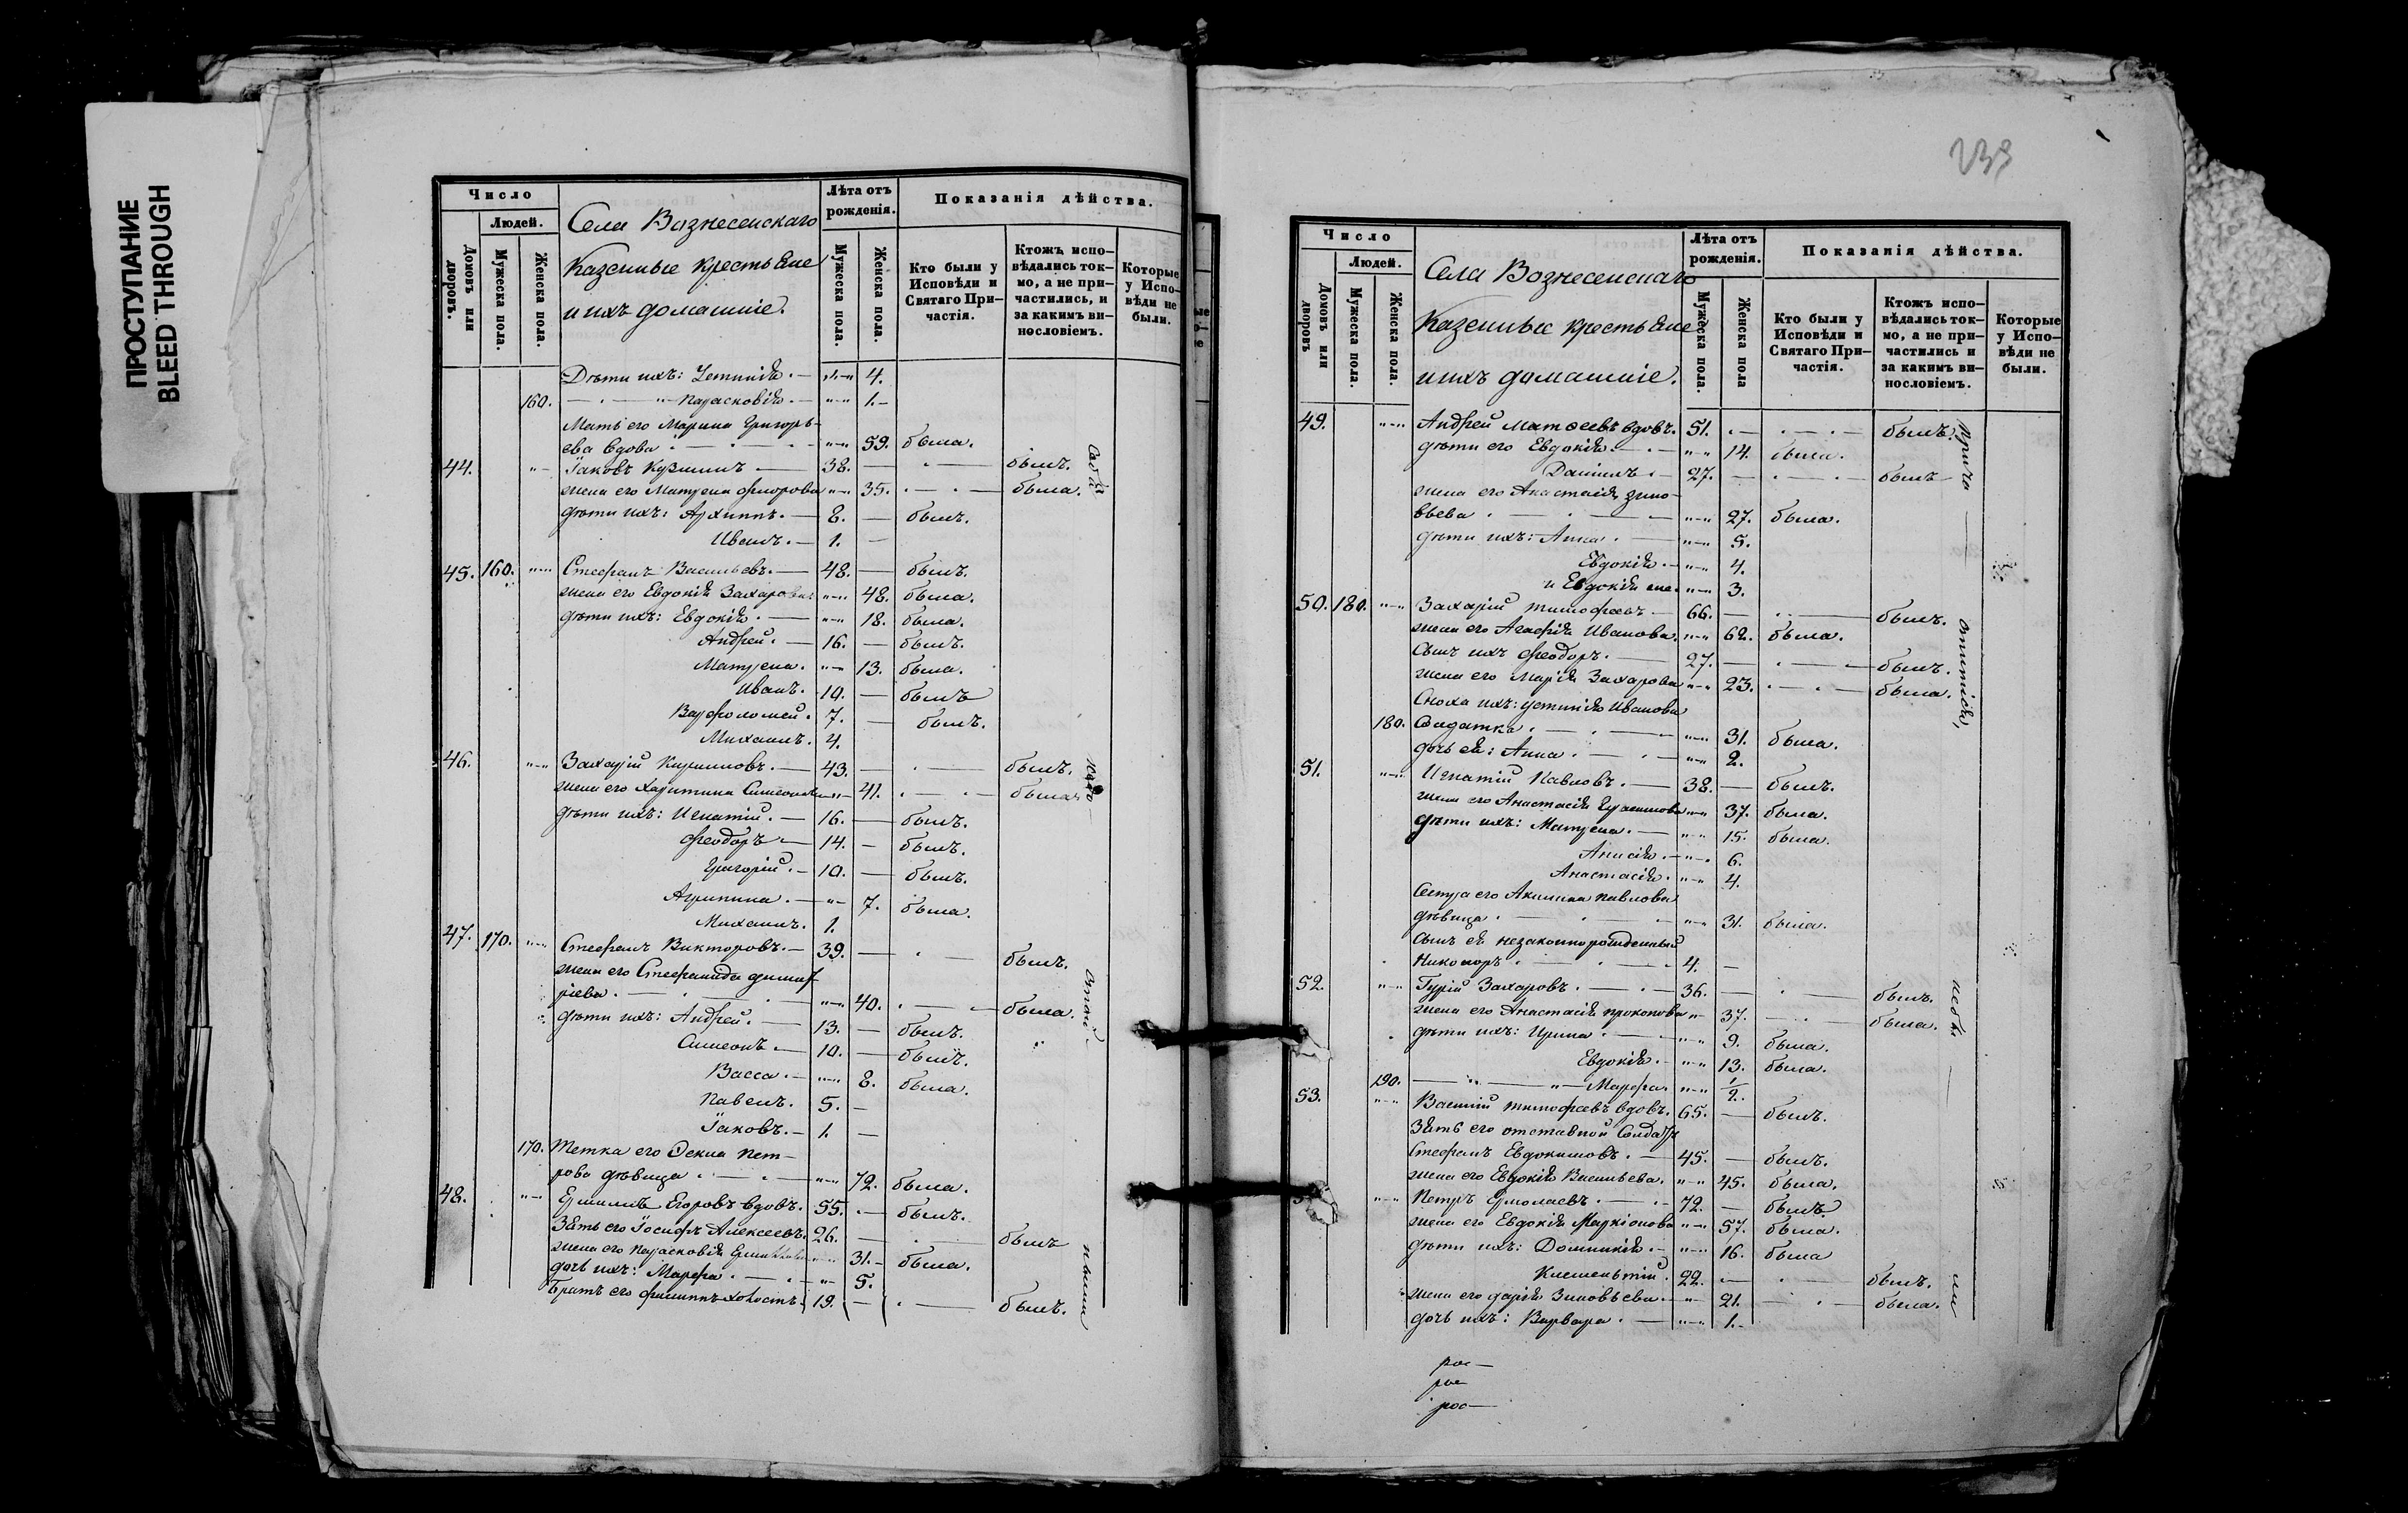 ПРОСТУПАНИЕ
BLEED THROUGH
Число
Людей.
Домовъ или дворовъ.
Мужеска пола.
Женска пола.
Села Вознесенскаго
Казенные крестьяне
и ихъ домашніе.
Лѣта отъ рожденія.
Мужеска пола.
Женска пола.
Показанія дѣйства.
Кто были у Исповѣди и Святаго Причастія.
Ктожъ исповѣдались токмо, а не причастились, и за какимъ винословіемъ.
Которые у Исповѣди не были.
Дѣти ихъ: Устинія. 4.
160. Парасковія. 1.
Мать его Марина Григорь-
ева вдова 59. была.
44. Іаковъ Кузминъ 38. былъ.
жена его Матрена Флорова 35. была.
дѣти ихъ: Архиппъ. 8. былъ.
Иванъ. 1.
45. 160. Стефанъ Васильевъ. 48. былъ.
жена его Евдокія Захарова 48. была.
дѣти ихъ: Евдокія. 18. была.
Андрей. 16. былъ.
Матрена. 13. была.
Иванъ. 10. былъ
Варфоломей. 7. былъ.
Михаилъ. 4.
46. Захарій Кириловъ. 43. былъ.
жена его Харитина Симеонова 41. была.
дѣти ихъ: Игнатій. 16. былъ.
Феодоръ 14. былъ.
Григорій. 10. былъ.
Агрипина. 7. была.
Михаилъ. 1.
47. 170. Стефанъ Викторовъ. 39. былъ.
жена его Стефанида Димит-
ріева. 40. была.
дѣти ихъ: Андрей. 13. былъ.
Симеонъ. 10. былъ.
Васса. 8. была.
Павелъ. 5.
Іаковъ. 1.
170. Тетка его Өекла Пет-
рова дѣвица 72. была.
48. Ермилъ Егоровъ вдовъ. 55. былъ.
Зять его Іосифъ Алексеевъ. 26. былъ
жена его Парасковія Ермилова 31. была.
дочь ихъ: Марфа. 5.
Братъ его Филиппъ холостъ. 19. былъ.
239
Число
Людей.
Домовъ или дворовъ
Мужеска пола.
Женска пола.
Села Вознесенскаго
Казенные крестьяне
и ихъ домашніе.
Лѣта отъ рожденія.
Мужеска пола.
Женска пола
Показанія дѣйства.
Кто были у Исповѣди и Святаго Причастія.
Ктожъ исповѣдались токмо, а не причастились и за какимъ винословіемъ.
Которые у Исповѣди не были.
49. Андрей Матѳеевъ вдовъ. 51. былъ.
дѣти его Евдокія. 14. была.
Даніилъ. 27. былъ
жена его Анастасія Зино-
вьева 27. была.
дѣти ихъ: Анна. 5.
Евдокія. 4.
и Евдокія же. 3.
50. 180. Захарій Тимофеевъ 66. былъ.
жена его Агафія Иванова. 62. была.
Сынъ ихъ Феодоръ. 27. былъ.
жена его Марія Захарова 23. была.
Сноха ихъ: Устинія Иванова
180. Солдатка. 31. была.
дочь ея: Анна. 2.
51. Игнатій Павловъ. 38. былъ.
жена его Анастасія Герасимова 37. была.
дѣти ихъ: Матрена. 15. была.
Анисія. 6.
Анастасія. 4.
Сестра его Акилина Павлова
дѣвица. 31. была.
Сынъ ея незаконнорожденный
Никаноръ. 4.
52. Гурій Захаровъ. 36. былъ.
жена его Анастасія Прокопова 37. была.
дѣти ихъ: Ирина. 9. была.
Евдокія. 13. была.
190. Марфа. 1/2.
53. Василій Тимофеевъ вдовъ. 65. былъ.
Зять его отставной Солдатъ
Стефанъ Евдокимовъ. 45. былъ.
жена его Евдокія Васильева. 45. была.
Петръ Ермолаевъ. 72. былъ.
жена его Евдокія Маркіонова 57. была.
дѣти ихъ: Домникія. 16. была
Клементій. 22. былъ.
жена его Дарія Зиновьева 21. была.
дочь ихъ: Варвара. 1.
рос
рос
рос